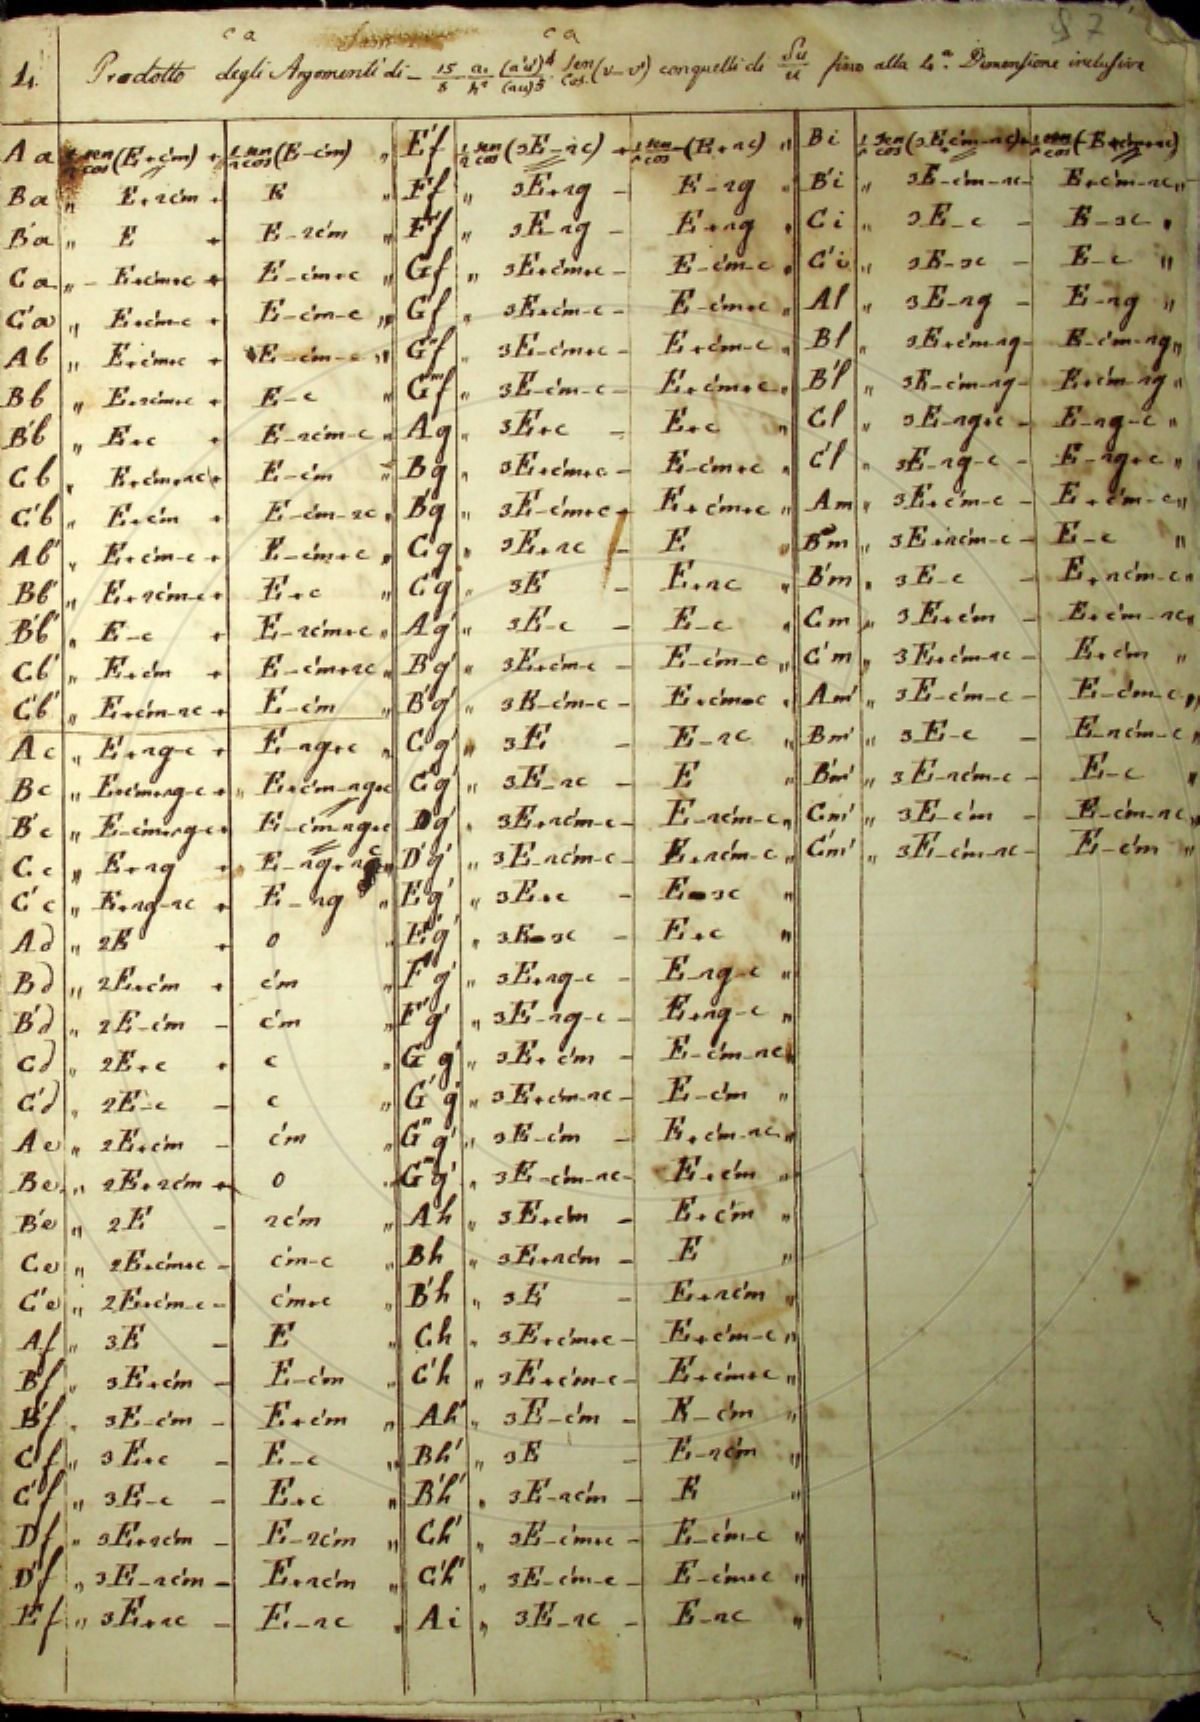 87
c a c a
1. Prodotto degli Argomenti di - 15/8 a./h² (a'u')⁴/(au)⁵ . sen/cos (v-v') con quelli di δu/u fino alla 4.ª Dimensione inclusive
Aa 1/2 sen/cos (E+c'm) + 1/2 sen/cos (E-c'm) "
Ba " E+2c'm + E "
B'a " E + E-2c'm "
Ca " E+c'm+c + E-c'm+c "
C'a " E+c'm-c + E-c'm-c "
Ab " E+c'm+c + E-c'm-c "
Bb " E+2c'm+c + E-c "
B'b " E+c + E-2c'm-c "
Cb " E+c'm+2c + E-c'm -
C'b " E+c'm + E-c'm-2c "
Ab' " E+c'm-c + E-c'm+c "
Bb' " E+2c'm-c + E+c "
B'b' " E-c + E-2c'm+c "
Cb' " E+c'm + E-c'm+2c "
C'b' " E+c'm-2c + E-c'm "
Ac " E+2g-c + E-2g+c "
Bc " E+c'm+2g-c + " E+c'm-2g+c
B'c " E-c'm+2g-c + E-c'm-2g+c
Cc " E+2g + E-2g+2c "
C'c " E+2g-2c + E-2g "
Ad " 2E + 0 "
Bd " 2E+c'm + c'm
B'd " 2E-c'm - c'm "
Cd " 2E+c + c "
C'd " 2E-c - c "
Ae " 2E+c'm - c'm "
Be " 2E+2c'm + 0 "
B'e " 2E - 2c'm "
Ce " 2E+c'm+c - c'm-c "
C'e " 2E+c'm-c - c'm+c "
Af " 3E - E "
Bf " 3E+c'm - E-c'm "
B'f " 3E-c'm - E+c'm "
Cf " 3E+c - E-c "
C'f " 3E-c - E+c "
Df " 3E+2c'm - E-2c'm "
D'f " 3E-2c'm - E+2c'm "
Ef " 3E+2c - E-2c "
E'f 1/2 sen/cos (3E-2c) + 1/2 sen/cos - (E+2c) "
Ff " 3E+2g - E-2g "
F'f " 3E-2g - E+2g "
Gf " 3E+c'm+c - E-c'm-c "
G'f " 3E+c'm-c - E-c'm+c "
G"f " 3E-c'm+c - E+c'm-c "
G'''f " 3E-c'm-c - E+c'm+c "
Ag " 3E+c - E+c "
Bg " 3E+c'm+c - E-c'm+c "
B'g " 3E-c'm+c - E+c'm+c "
Cg " 3E+2c - E "
C'g " 3E - E+2c "
Ag' " 3E-c - E-c "
Bg' " 3E+c'm-c - E-c'm-c "
B'g' " 3E-c'm-c - E+c'm-c "
Cg' " 3E - E-2c "
C'g' " 3E-2c - E "
Dg' " 3E+2c'm-c - E-2c'm-c "
D'g' " 3E-2c'm-c - E+2c'm-c "
Eg' " 3E+c - E-3c "
E'g' " 3E-3c - E+c "
Fg' " 3E+2g-c E-2g-c "
F'g' " 3E-2g-c - E+2g-c "
Gg' " 3E+c'm - E-c'm-2c
G'g' " 3E+c'm-2c - E-c'm "
G"g' " 3E-c'm - E+c'm-2c "
G'''g' " 3E-c'm-2c - E+c'm "
Ah " 3E+c'm - E+c'm "
Bh " 3E+2c'm - E "
B'h " 3E - E+2c'm "
Ch " 3E+c'm+c - E+c'm-c "
C'h " 3E+c'm-c - E+c'm+c "
Ah' " 3E-c'm - E-c'm "
Bh' " 3E - E-2c'm "
B'h' " 3E-2c'm - E "
Ch' " 3E-c'm+c - E-c'm-c "
C'h' " 3E-c'm-c - E-c'm+c "
Ai " 3E-2c - E-2c "
Bi 1/2 sen/cos (3E+c'm-2c) + 1/2 sen/cos (-E+c'm+2c)
B'i " 3E-c'm-2c - E+c'm-2c "
Ci " 3E-c - E-3c "
C'i " 3E-3c - E-c "
Al " 3E-2g - E-2g "
Bl " 3E+c'm-2g - E-c'm-2g "
B'l " 3E-c'm-2g - E+c'm-2g "
Cl " 3E-2g+c - E-2g-c "
C'l " 3E-2g-c - E-2g+c "
Am " 3E+c'm-c - E+c'm-c "
Bm " 3E+2c'm-c - E-c "
B'm " 3E-c - E+2c'm-c "
Cm " 3E+c'm - E+c'm-2c "
C'm " 3E+c'm-2c - E+c'm "
Am' " 3E-c'm-c - E-c'm-c "
Bm' " 3E-c - E-2c'm-c "
B'm' " 3E-2c'm-c - E-c "
Cm' " 3E-c'm - E-c'm-2c "
C'm' " 3E-c'm-2c - E-c'm "